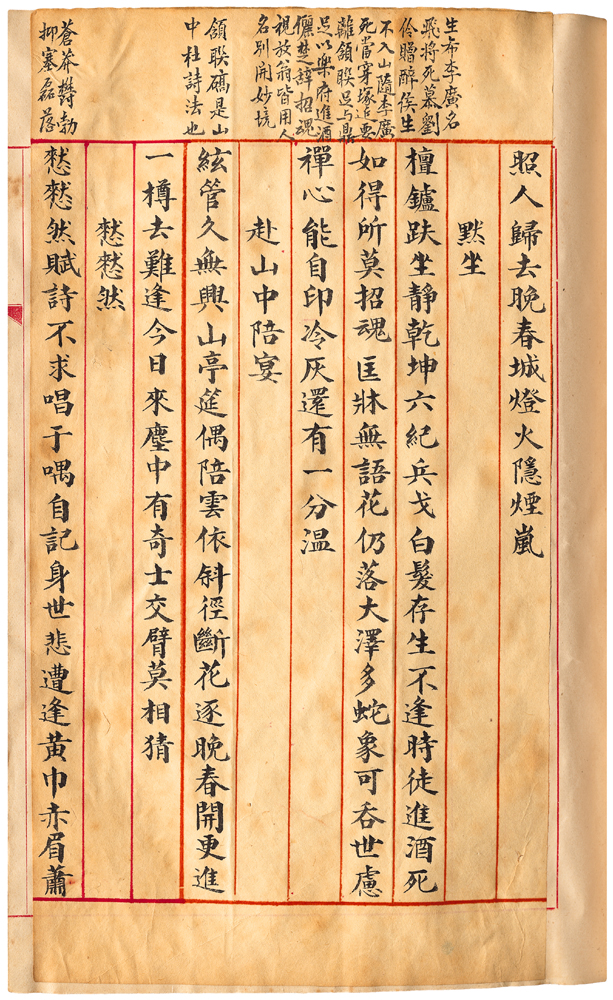 照人歸去晚春城燈火隱煙嵐
默坐
檀鑪趺坐靜乾坤六紀兵戈白髮存生不逢時徒進酒死
如得所莫招魂匡牀無語花仍落大澤多蛇象可吞世慮
禪心能自印冷灰還有一分溫
生希李廣名
飛将死慕劉
伶贈醉侯生
不入山隨李廣
死當穿塚近要
離頷聯足与鼎
足以樂府進酒
儷楚辭招魂
視放翁皆用人
名别開妙境
赴山中陪宴
絃管久無興山亭筵偶陪雲依斜徑斷花逐晚春開更進
一樽去難逢今日來塵中有奇士交臂莫相猜
頷聯碻是山
中杜詩法也
憖憖然
憖憖然賦詩不求唱于喁自記身世悲遭逢黃巾赤眉蕭
蒼莽欝勃
抑塞磊落